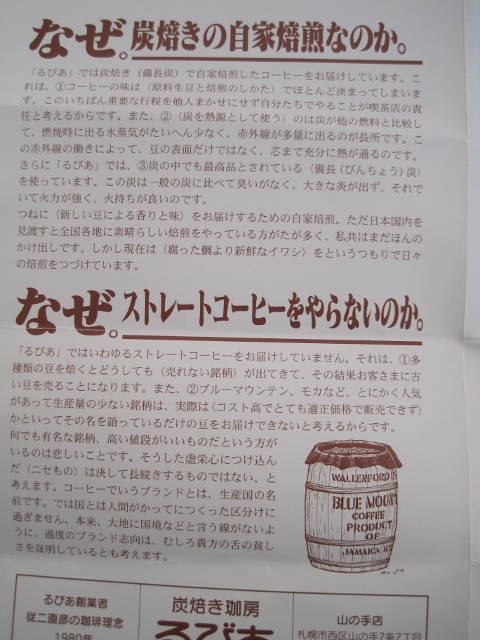 なぜ。炭焙きの自家焙煎なのか。
「るびあ」では炭焙き（備長炭）で自家焙煎したコーヒーをお届けしています。こ
れは、①コーヒーの味は〈原料生豆と焙煎のしかた〉でほとんど決まってしまいま
す。このいちばん重要な行程を他人まかせにせず自分たちでやることが喫茶店の責
任と考えるからです。また、②〈炭を熱源として使う〉のは炭が他の燃料と比較し
て、燃焼時に出る水蒸気がたいへん少なく、赤外線が多量に出るのが長所です。こ
の赤外線の働きによって、豆の表面だけではなく、芯まで充分に熱が通るのです。
さらに「るびあ」では、③炭の中でも最高品とされている〈備長（びんちょう）炭〉
を使っています。この炭は一般の炭に比べて臭いがなく、大きな炎が出ず、それで
いて火力が強く、火持ちが良いのです。
つねに〈新しい豆による香りと味〉をお届けするための自家焙煎。ただ日本国内を
見渡すと全国各地に素晴らしい焙煎をやっている方がたが多く、私共はまだほんの
かけ出しです。しかし現在は〈腐った鯛より新鮮なイワシ〉をというつもりで日々
の焙煎をつづけています。
なぜ。ストレートコーヒーをやらないのか。
「るびあ」ではいわゆるストレートコーヒーをお届けしていません。それは、①多
種類の豆を焙くとどうしても〈売れない銘柄〉が出てきて、その結果お客さまに古
い豆を売ることになります。また、②ブルーマウンテン、モカなど、とにかく人気
があって生産量の少ない銘柄は、実際は〈コスト高でとても適正価格で販売できず〉
かといってその名を語っているだけの豆をお届けできないと考えるからです。
何でも有名な銘柄、高い値段がいいものだという方が
いるのは悲しいことです。そうした虚栄心につけ込ん
だ〈ニセもの〉は決して長続きするものではない、と
考えます。コーヒーでいうブランドとは、生産国の名
前です。では国とは人間がかってにつくった区分けに
過ぎません。本来、大地に国境などと言う線がないよ
うに、過度のブランド志向は、むしろ貴方の舌の貧し
さを証明しているとも考えます。
WALLENFORD E
BLUE MOUNT
COFFEE
PRODUCT
OF
JAMAICA
るびあ創業者
従二直彦の珈琲理念
1980年
炭焙き珈房
るびあ
山の手店
札幌市西区山の手7条7丁目